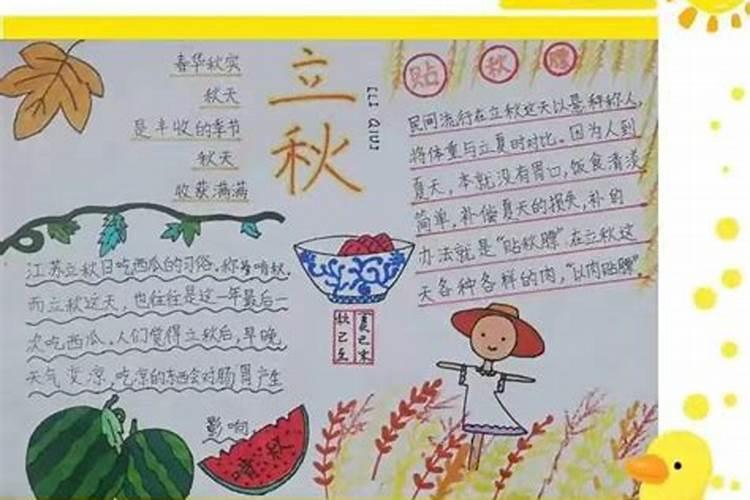 春华秋实
秋天
是丰收的季节
秋天
收获满满
立秋
LI QIUJ
贴秋膘
民间流行在立秋这天以悬秤称人,
将体重与立夏时对比。因为人到
夏天,本就没有胃口,饭食清淡
简单,补偿夏天的损失,补的
办法就是“贴秋膘”在立秋这
天各种各样的肉,“以肉贴膘”.
江苏立秋日吃西瓜的习俗,称为啃秋.
而立秋这天,也往往是这一年最后一
次吃西瓜.人们觉得立秋后,早晚
天气变凉,吃凉的东西会对肠胃产生
影响.
夏已末
秋已至
啃秋